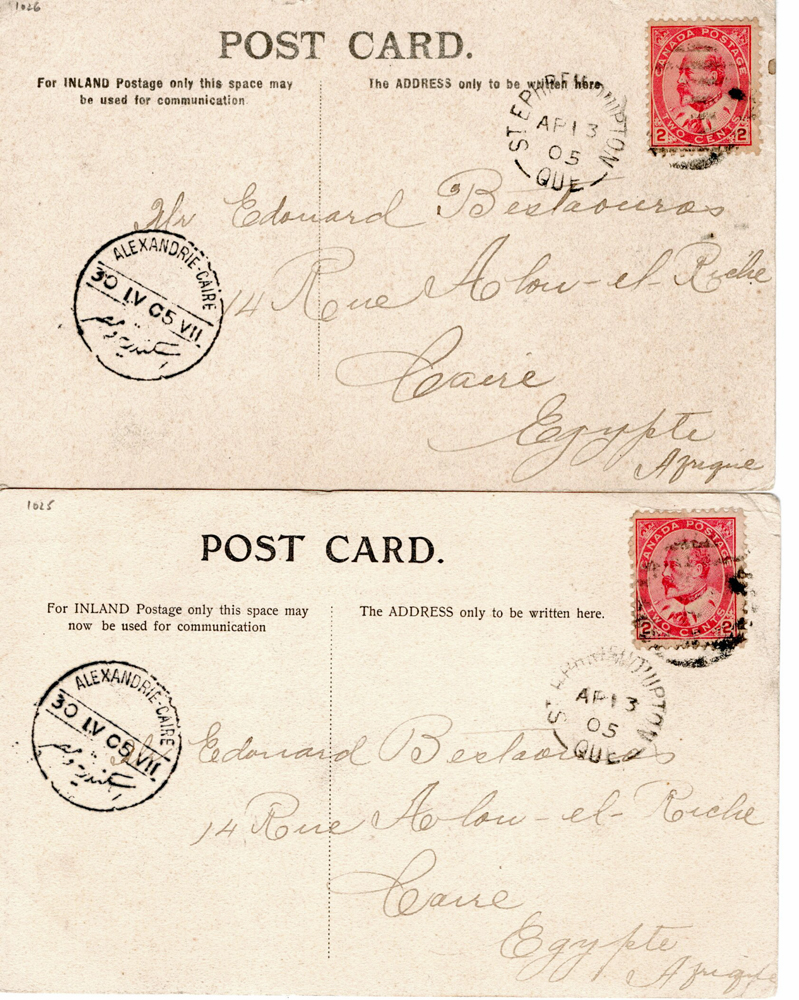 1026
POST CARD.
For INLAND Postage only this space may
be used for communication
The ADDRESS only to be written here
CANADA POSTAGE
2 TWO CENTS 2
ST EPHREM UPTON
AP 13
05
QUE
Mr Edouard Bestaouros
14 Rue Abou-el-Riche
Caire
Egypte
Afrique
ALEXANDRIE-CAIRE
30 IV 05 VII
اسكندرية ومصر
1025
POST CARD.
For INLAND Postage only this space may
now be used for communication
The ADDRESS only to be written here.
CANADA POSTAGE
2 TWO CENTS 2
UPTON
AP 13
05
QUE
Edouard Bestaouros
14 Rue Abou-el-Riche
Caire
Egypte
Afrique
ALEXANDRIE-CAIRE
30 IV 05 VII
اسكندرية ومصر